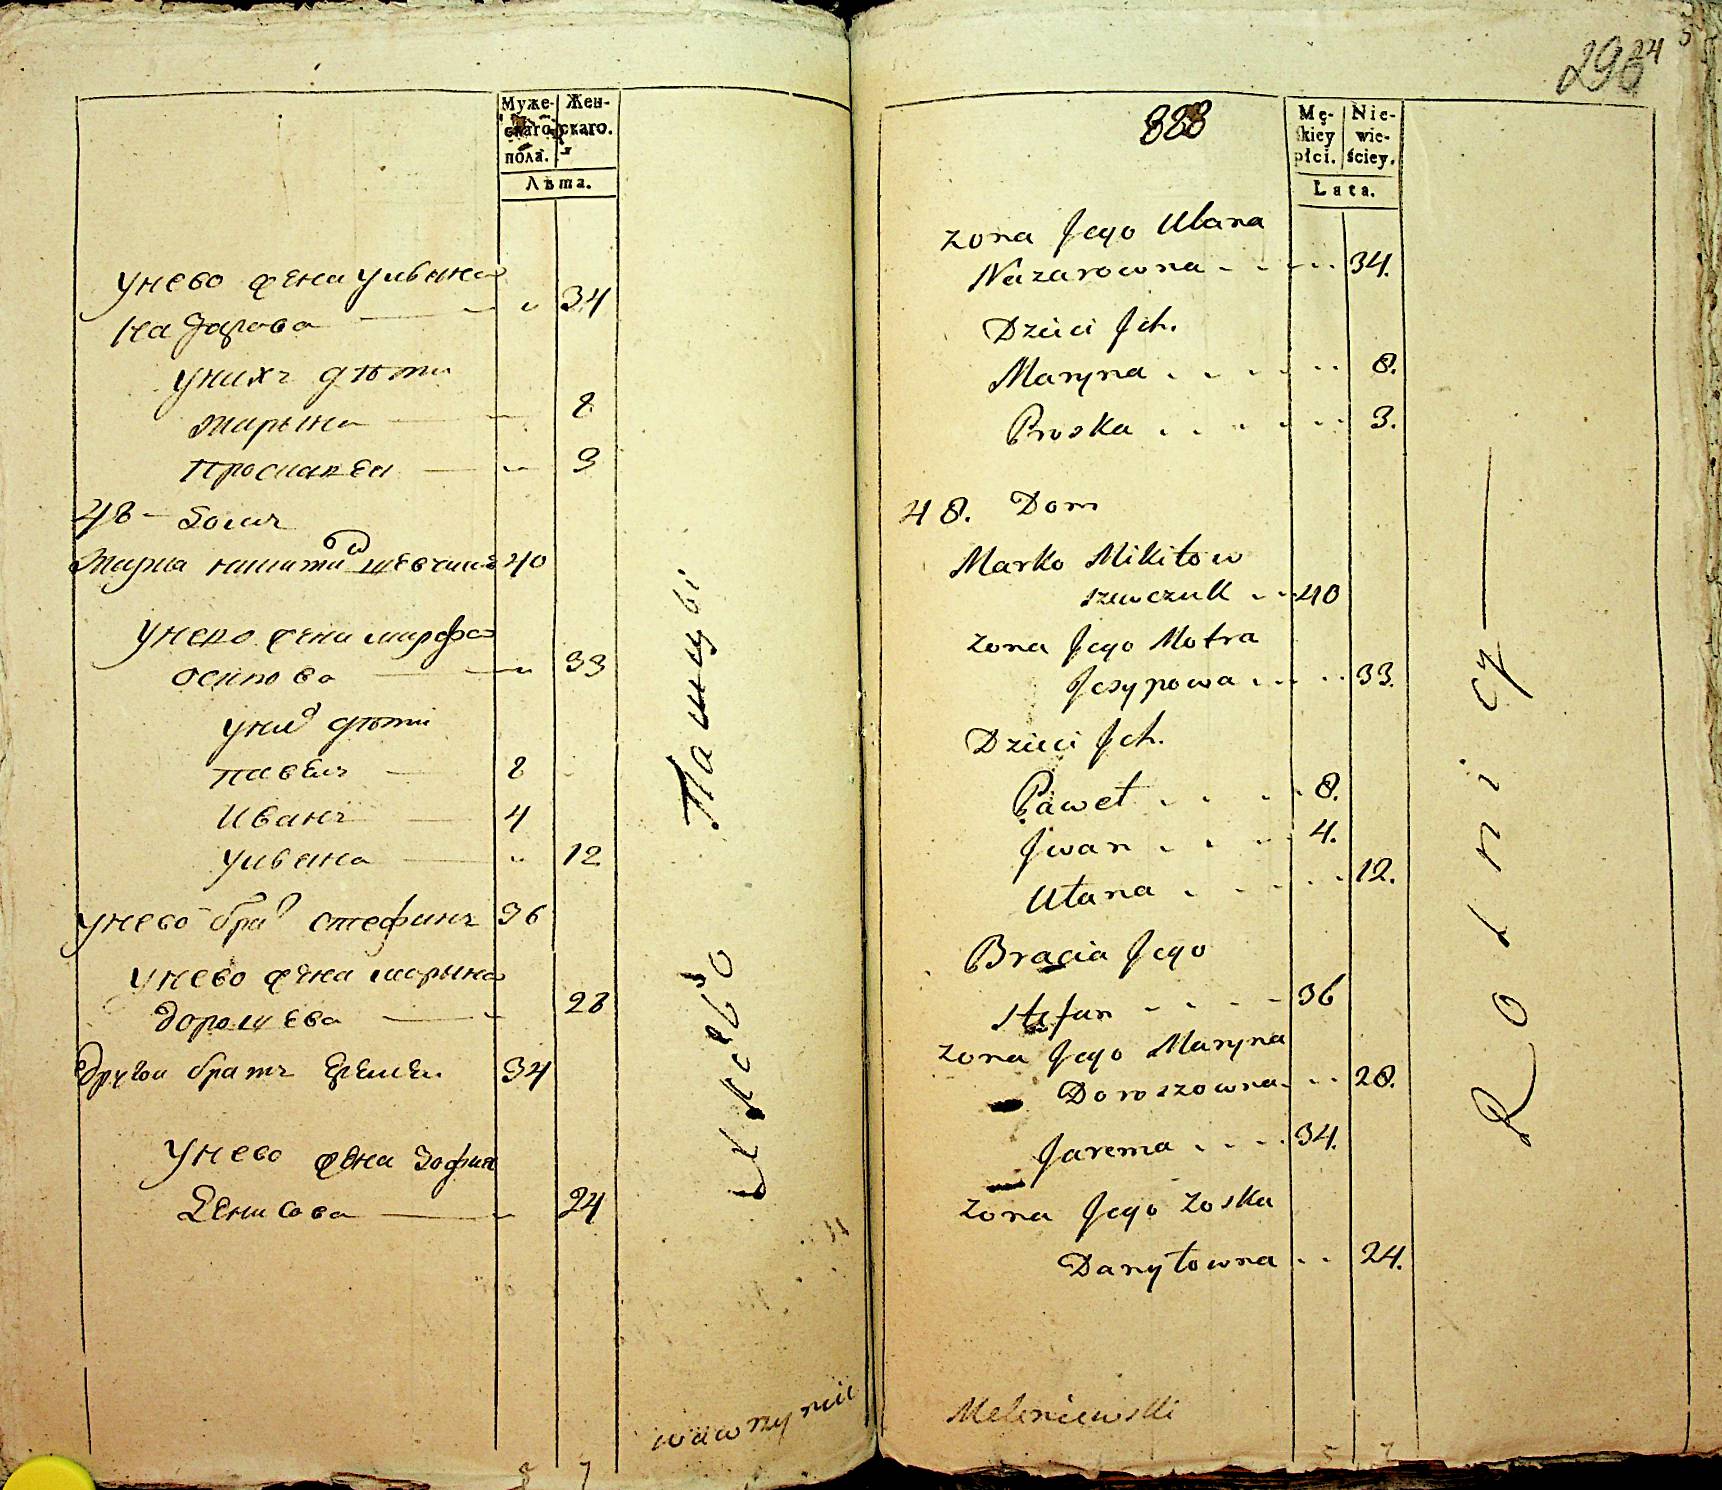 Муже-
скаго
пола.
Жен-
скаго.
Лѣта.
унево жена ульяна
Назарова — " 34
унихъ дѣти
Марына — 8
Проскавея — " 3
48 — Домъ
Марка Никитинъ Шевчикъ 40
унево жена Марфа
осипова — " 33
унихъ дѣти
Павелъ — 8
Иванъ — 4
ульяна — " 12
унево братъ стефанъ 36
унево жена марына
дорошева — 28
другои братъ Еремеи 34
унево жена Зофия
Денисова — " 24
Пашцы
wawrzyniec
2984
5
323
Mę-
skiey
płci.
Nie-
wie-
ściey.
Lata.
Zona Jego Ulana
Nazarowna 34.
Dzieci Jch.
Maryna 8.
Proska 3.
48. Dom
Marko Mikitow
szewczuk 40
Zona Jego Motra
Jesypowa 33.
Dzieci Jch.
Paweł 8.
Jwan 4.
Ulana 12.
Bracia Jego
Stefan 36
Zona Jego Maryna
Doroszowna 28.
Jarema 34.
Zona Jego Zoska
Danyłowna 24.
Rolnicy
Meleniewski
5 7
5 7